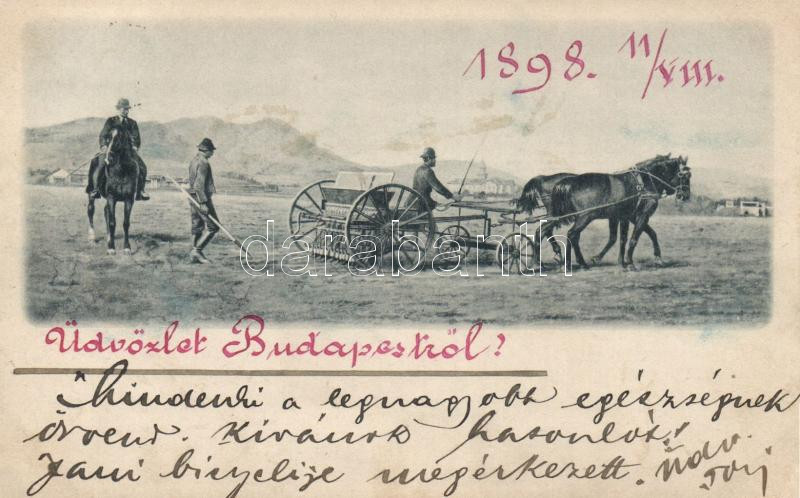 1898. 11/VIII.
darabanth
Üdvözlet Budapestről!
Mindenki a legnagyobb egészségnek
örvend. Kívánok hasonlót!
Jani bicyclije megérkezett. Üdv.